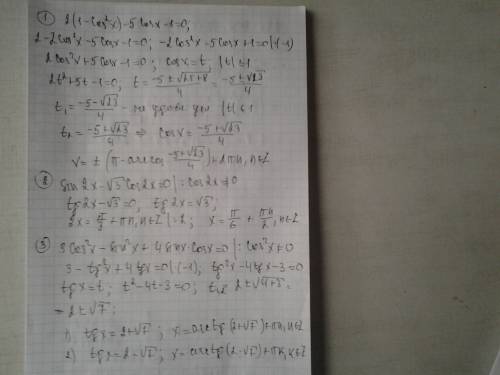 ① 2(1-cos²x)-5cosx-1=0;
2-2cos²x-5cosx-1=0; -2cos²x-5cosx+1=0 |·(-1)
2cos²x+5cosx-1=0; cosx=t, |t|≤1
2t²+5t-1=0, t=(-5±√(25+8))/4=(-5±√33)/4
t₁=(-5-√33)/4 - не удовл усл |t|≤1
t₂=(-5+√33)/4 ⇒ cosx=(-5+√33)/4
x=±(π-arccos (-5+√33)/4)+2πn, n∈Z
② sin2x-√3cos2x=0 |:cos2x≠0
tg2x-√3=0, tg2x=√3,
2x=π/3+πn, n∈Z |:2; x=π/6+πn/2, n∈Z
③ 3cos²x-sin²x+4sinx·cosx=0 |:cos²x≠0
3-tg²x+4tgx=0 |·(-1); tg²x-4tgx-3=0
tgx=t; t²-4t-3=0; t₁,₂=2±√(4+3)=
=2±√7;
1) tgx=2+√7; x=arctg(2+√7)+πn, n∈Z
2) tgx=2-√7; x=arctg(2-√7)+πk, k∈Z